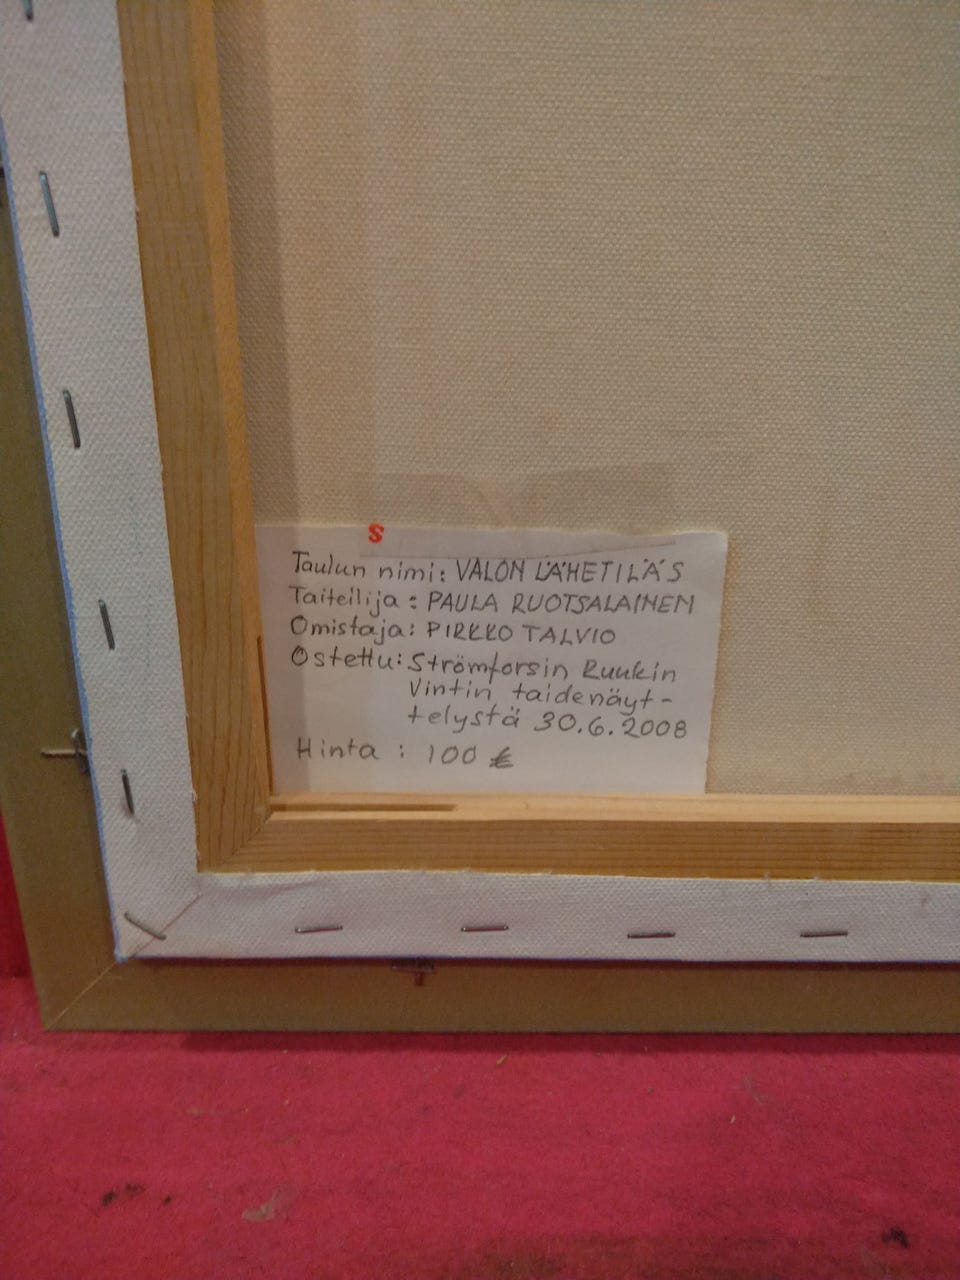 S
Taulun nimi: VALON LÄHETILÄS
Taiteilija: PAULA RUOTSALAINEN
Omistaja: PIRKKO TALVIO
Ostettu: Strömforsin Ruukin
Vintin taidenäyt-
telystä 30.6.2008
Hinta: 100 €